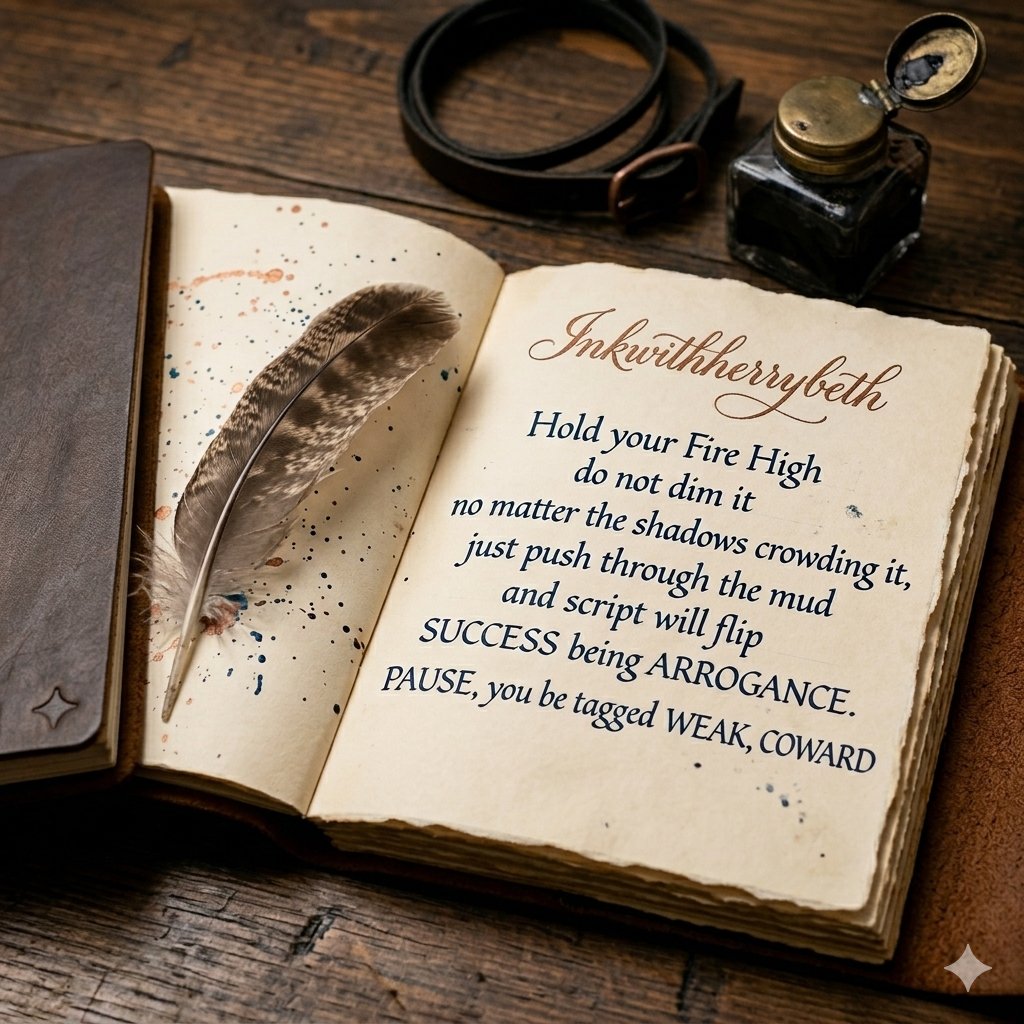 Inkwithherrybeth
Hold your Fire High
do not dim it
no matter the shadows crowding it,
just push through the mud
and script will flip
SUCCESS being ARROGANCE.
PAUSE, you be tagged WEAK, COWARD